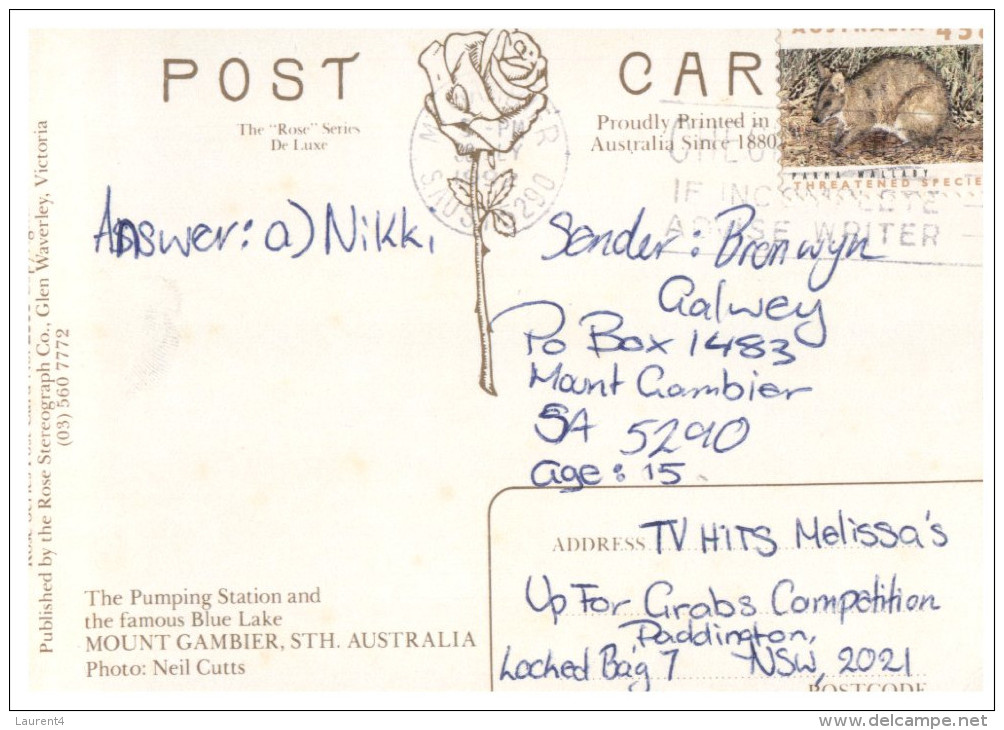 POST CAR
The "Rose" Series
De Luxe
Proudly Printed in
Australia Since 1880
AUSTRALIA 45c
PARMA WALLABY
THREATENED SPECIE
IF INCOMPLETE
ADVISE WRITER
5290
Published by the Rose Stereograph Co., Glen Waverley, Victoria
(03) 560 7772
Answer: a) Nikki
Sender: Bronwyn
Galwey
PO Box 1483
Mount Gambier
SA 5290
age: 15
ADDRESS TV HITS Melissa's
Up For Grabs Competition
Paddington,
Locked Bag 7 NSW, 2021
POSTCODE
The Pumping Station and
the famous Blue Lake
MOUNT GAMBIER, STH. AUSTRALIA
Photo: Neil Cutts
Laurent4
www.delcampe.net